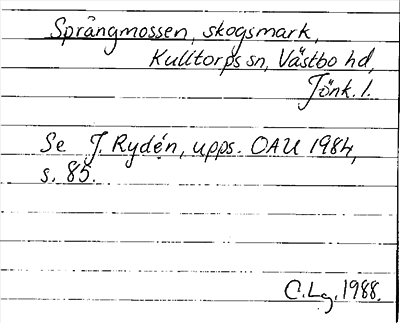 Språngmossen, skogsmark,
Kulltorps sn, Västbo hd,
Jönk. l.
Se J. Rydén, upps. OAU 1984,
s. 85.
C. Lg. 1988.